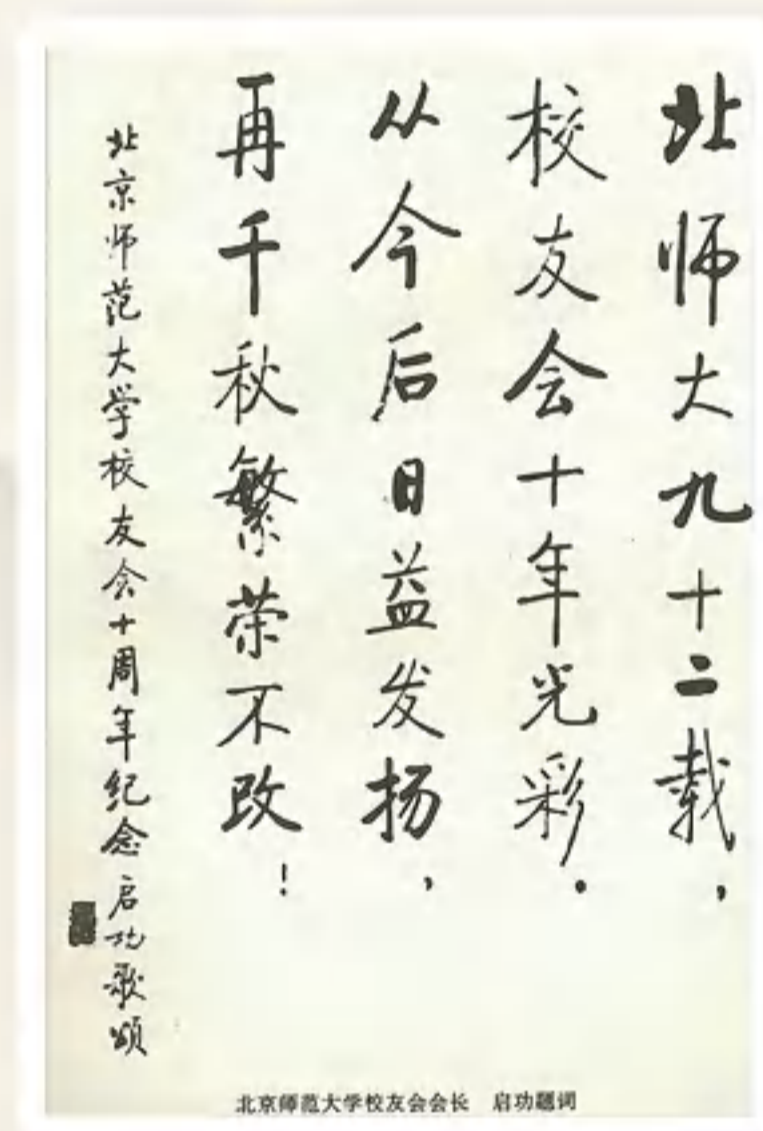 北师大九十二载，
校友会十年光彩.
从今后日益发扬，
再千秋繁荣不改！
北京师范大学校友会十周年纪念启功歌颂
北京师范大学校友会会长 启功题词